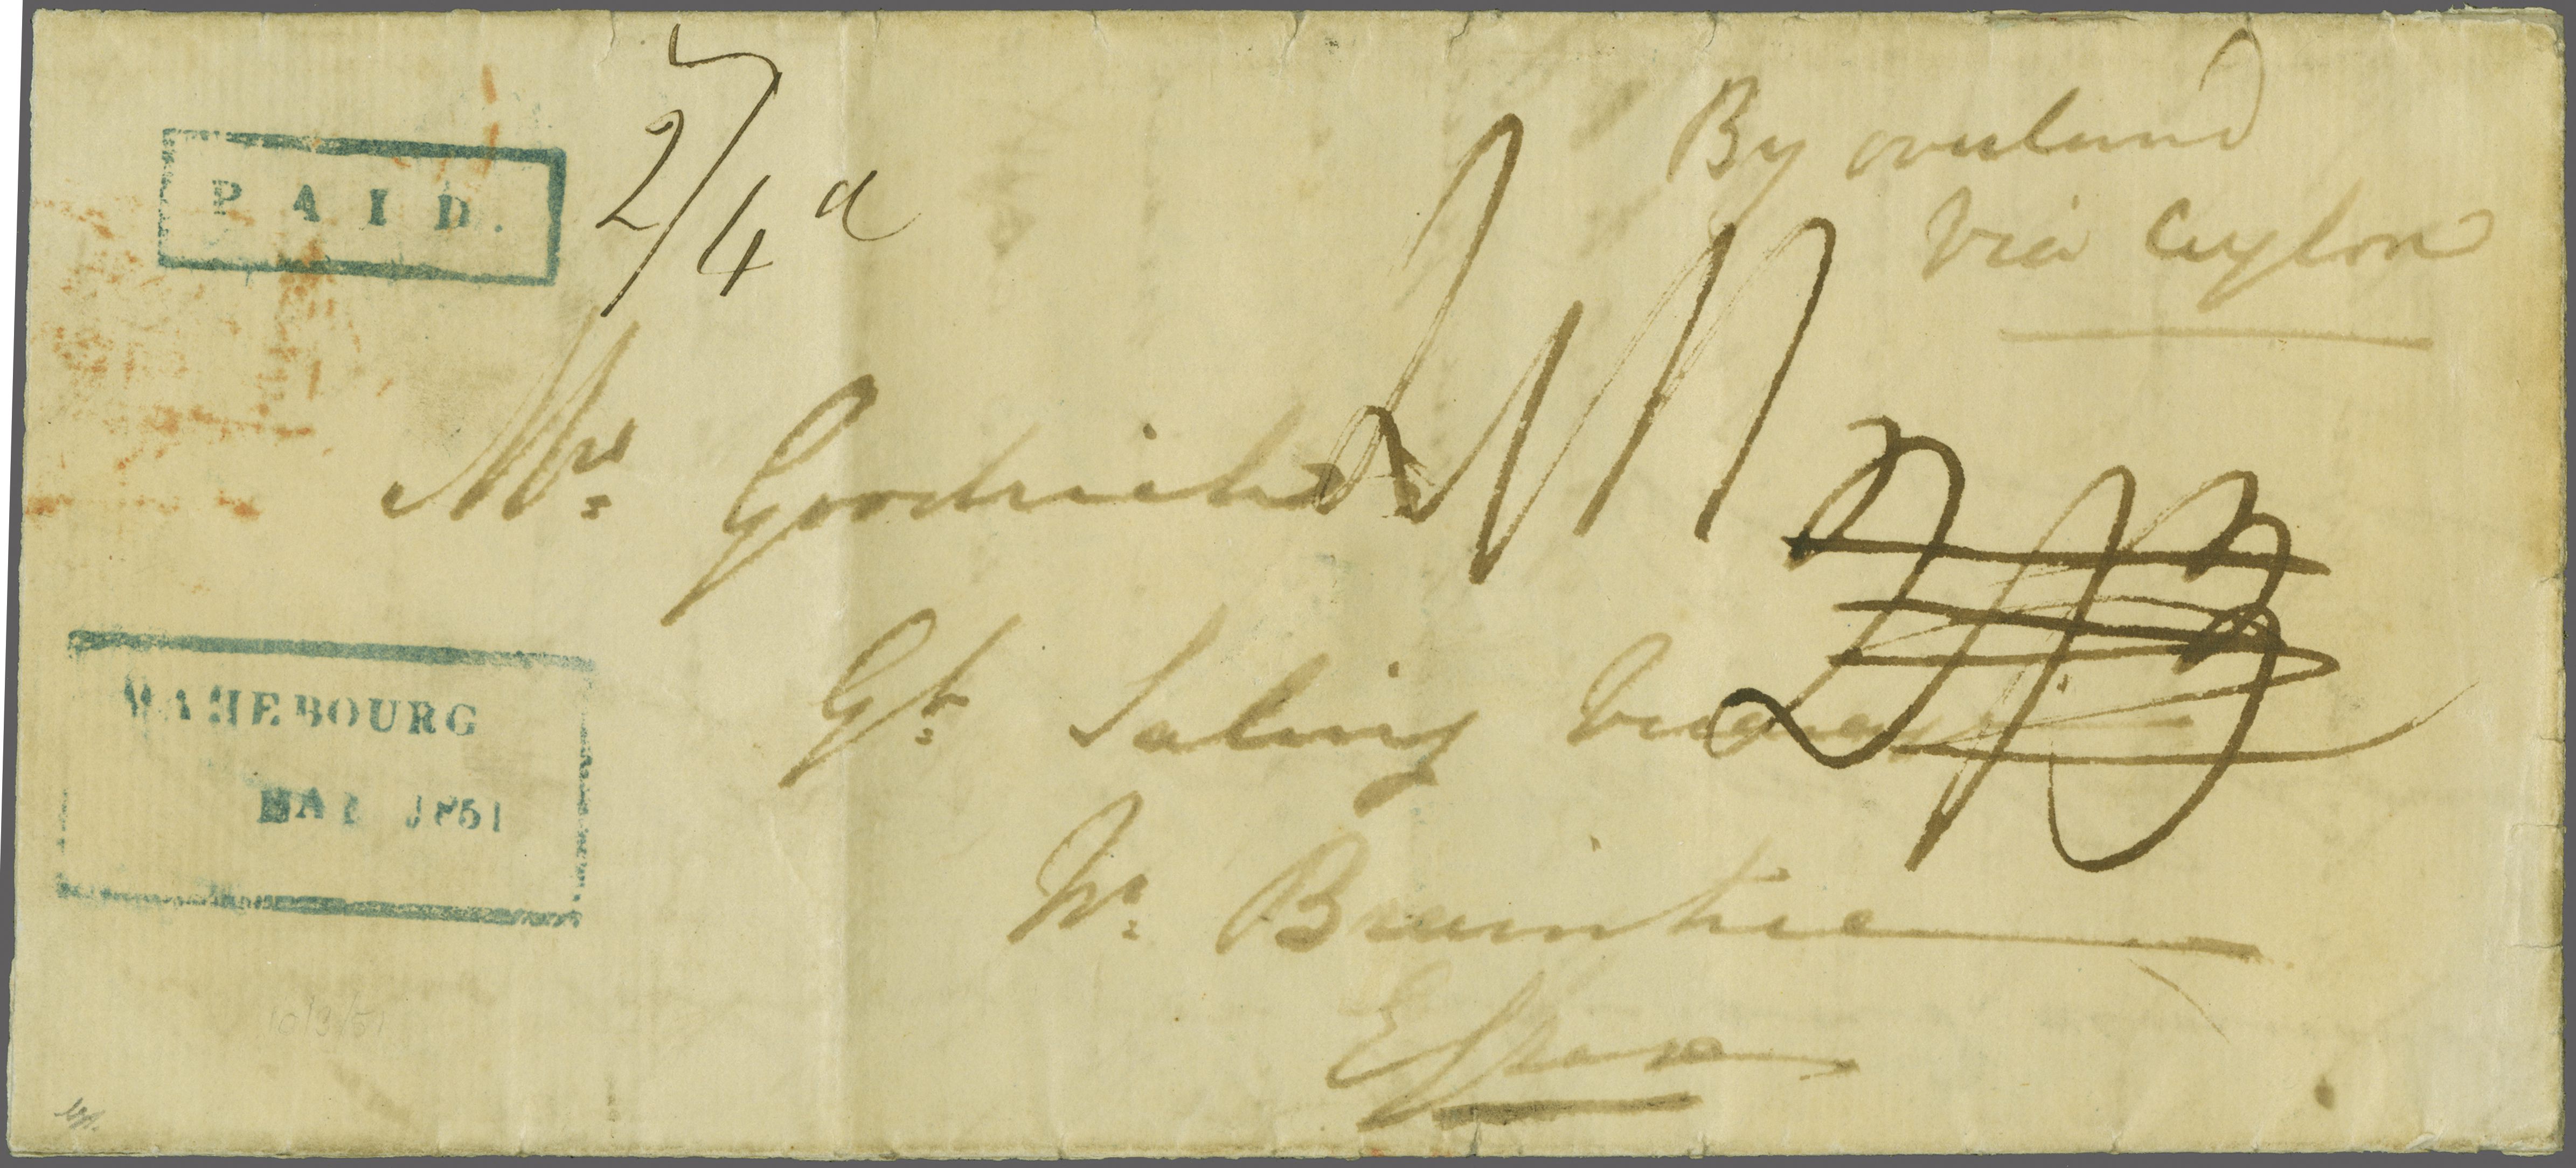 PAID.
2/4d
By overland
via Ceylon
Mrs. Goodrich
Gt. Saling
MAHEBOURG
MAR 1851
Nr. Braintree
Essex
10/3/51